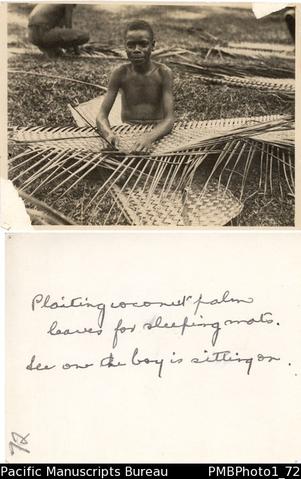 Plaiting coconut palm
leaves for sleeping mats.
See one the boy is sitting on.
72
Pacific Manuscripts Bureau PMBPhoto1_72